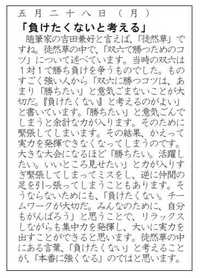 五月二十八日(月)
「負けたくないと考える」
随筆家の吉田兼好と言えば、「徒然草」で
すね。徒然草の中で、「双六で勝つためのコ
ツ」について述べています。当時の双六は
1対1で勝ち負けを争うものでした。もの
すごく強い人から「双六に勝つコツは、あ
まり『勝ちたい』と意気ごまないことが大
切だ。『負けたくない』と考えるのがよい」
と書いています。「勝ちたい」と意気ごんで
しまうと余計な力が入ります。そのために
緊張してしまいます。その結果、かえって
実力を発揮できなくなってしまうのです。
大きな大会になるほど「勝ちたい、活躍し
たい、いいところ見せたい」と力が入りす
ぎ緊張してしまってミスをし、逆に仲間の
足を引っ張ってしまうこともあります。そ
うならないためにも、「負けたくない。チー
ムワークが大切だ。みんなのために、自分
もがんばろう」と思うことで、リラックスし
ながらも集中力を発揮し、大いに実力を
出すことができると思います。徒然草の中
にある言葉、「負けたくない」と考えること
が、「本番に強くなる」のではと思います。